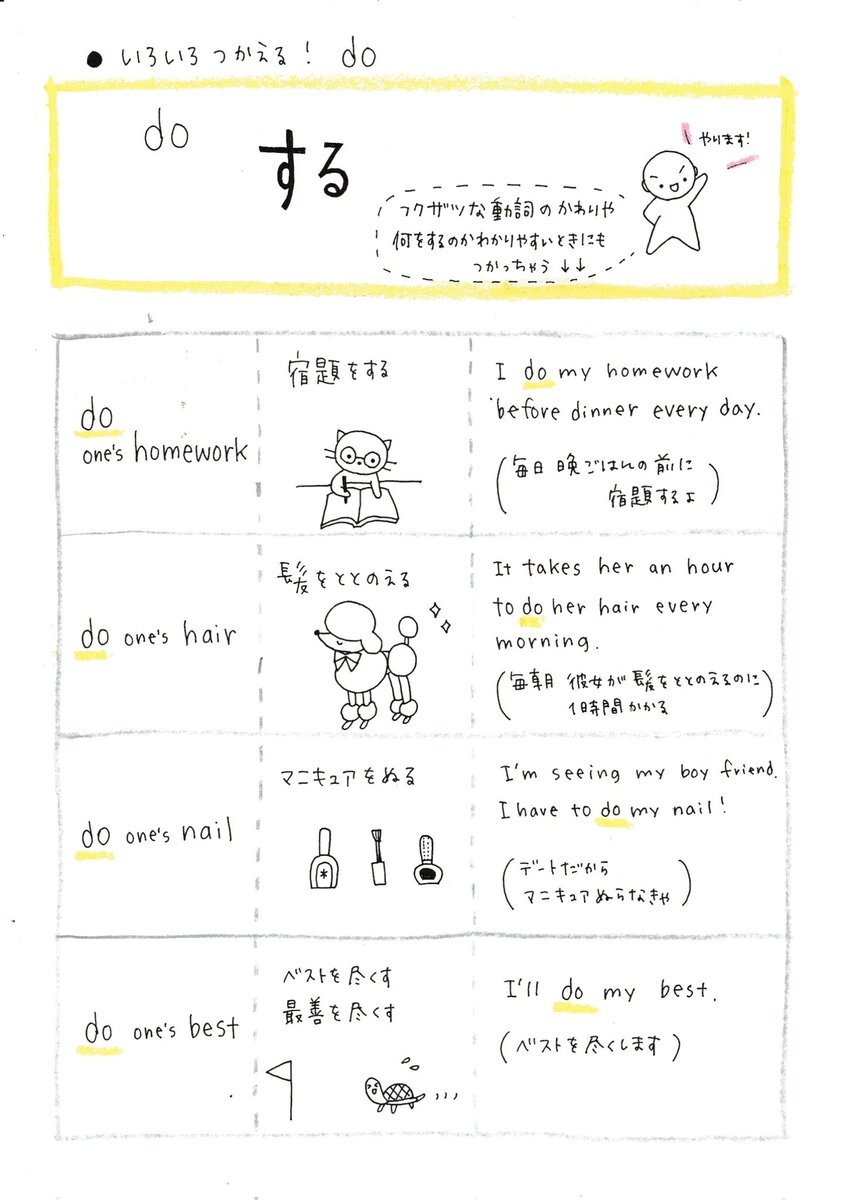 ● いろいろ つかえる! do
do
する
やります!
フクザツな動詞のかわりや
何をするのかわかりやすいときにも
つかっちゃう ↓↓
do
one's homework
宿題をする
I do my homework
before dinner every day.
(毎日 晩ごはんの前に
宿題するよ)
do one's hair
髪をととのえる
It takes her an hour
to do her hair every
morning.
(毎朝 彼女が髪をととのえるのに
1時間かかる)
do one's nail
マニキュアをぬる
I'm seeing my boy friend.
I have to do my nail!
(デートだから
マニキュアぬらなきゃ)
do one's best
ベストを尽くす
最善を尽くす
I'll do my best.
(ベストを尽くします)